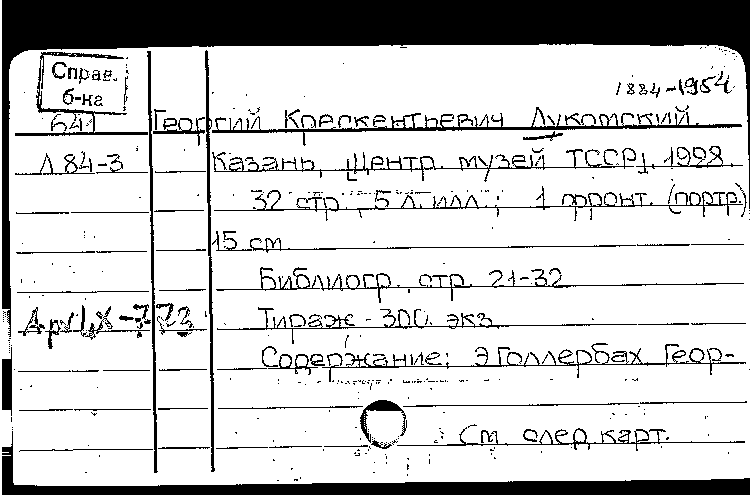 Справ.
б-ка
1884-1954
641 Георгий Крескентьевич Лукомский.
Л 84-3 Казань, [Центр. музей ТССР], 1928.
32 стр., 5 л. илл.; 1 фронт. (портр.)
15 см
Библиогр., стр. 21-32
Тираж - 300. экз.
Содержание: Э Голлербах. Геор-
См. след. карт.